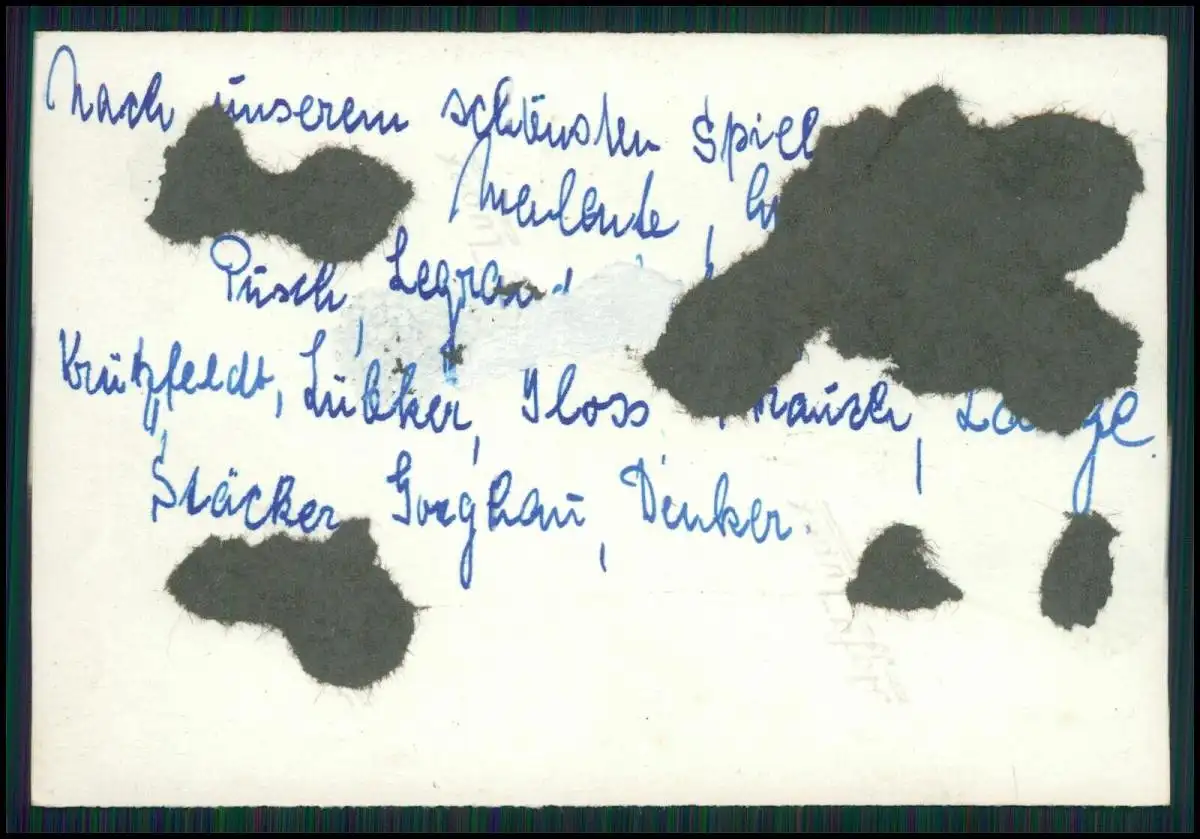 Nach unserem schönsten Spiel
Malente,
Püsch, Legran
Krützfeldt, Lübker, Iloss Lange.
Stäcker, Gorghau, Denker.